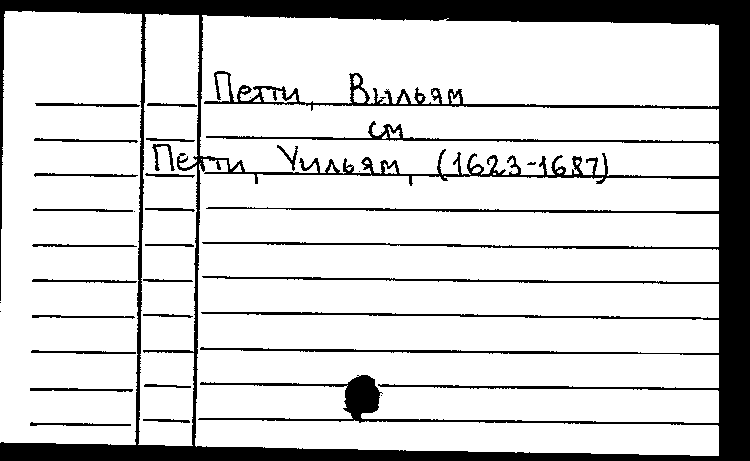 Петти, Вильям
см.
Петти, Уильям, (1623-1687)